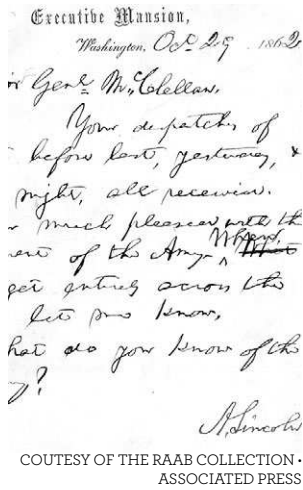 Executive Mansion,
Washington, Oct. 29, 1862
Genl. McClellan.
Your despatches of
before last, yesterday, &
night, all received.
much pleased with the
of the Army. When What
get entirely across the
let me know.
hat do you know of the
y?
A. Lincoln
COUTESY OF THE RAAB COLLECTION •
ASSOCIATED PRESS